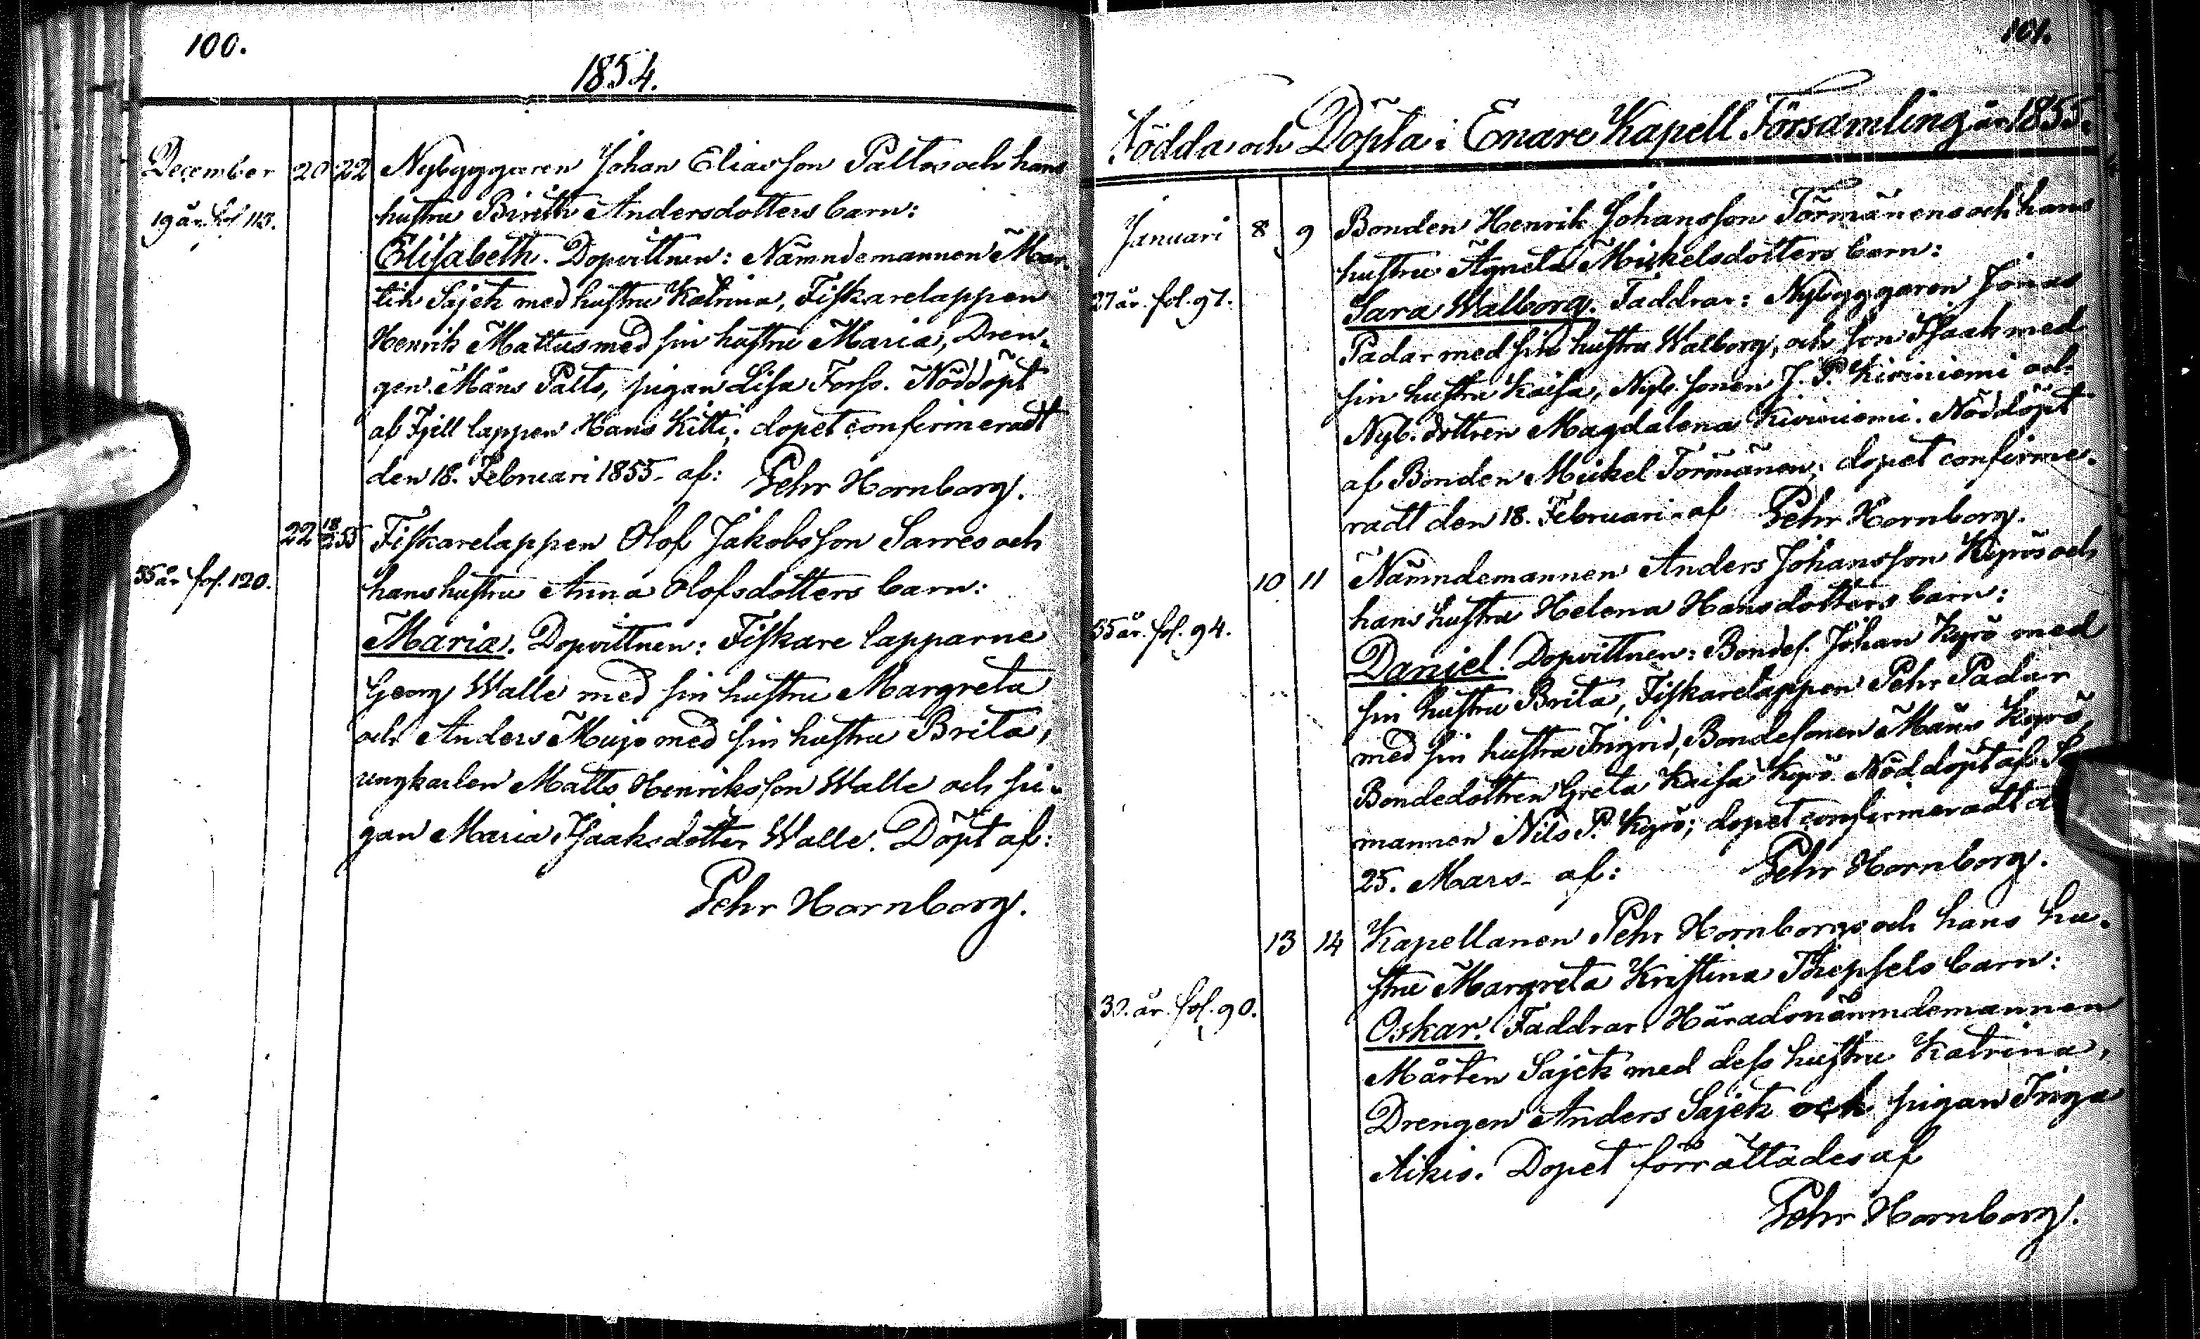 100.
1854.
December 20 22 Nybyggaren Johan Eliasson Paltos och hans
19 år fol. 113. hustru Birith Andersdotters barn:
Elisabeth. Dopvittnen: Nämndemannen Mår-
tin Sajets med hustru Katrina, Fiskarelappen
Henrik Mattus med sin hustru Maria, Dren-
gen Måns Palto, pigan Lisa Forss. Nöddöpt
af Fjell lappen Hans Kitti; dopet confirmeradt
den 18. Februari 1855 - af: Pehr Hornborg.
22 18/2 55 Fiskarelappen Olof Jakobsson Sarres och
35 år fol. 120. hans hustru Anna Olofsdotters barn:
Maria. Dopvittnen: Fiskare lapparne
Georg Walle med sin hustru Margreta
och Anders Mujo med sin hustru Brita,
ungkarlen Matts Henriksson Walle och pi-
gan Maria Isaaksdotter Walle. Döpt af:
Pehr Hornborg.
101.
Födda och Döpta i Enare Kapell Församling år 1855.
Januari 8 9 Bonden Henrik Johansson Törmänens och hans
hustru Agneta Mickelsdotters barn:
27 år. fol. 97. Sara Walborg. Faddrar: Nybyggaren Jonas
Padar med sin hustru Walborg, och son Isaak med
sin hustru Kaisa, Nyb. sonen J. P. Kiviniemi och
Nyb. dottren Magdalena Kiviniemi. Nöddöpt
af Bonden Mickel Törmänen; dopet confirme-
radt den 18. Februari - af Pehr Hornborg.
10 11 Nämndemannen Anders Johansson Kyrös och
55 år. fol. 94. hans hustru Helena Hansdotters barn:
Daniel. Dopvittnen: Bondes. Johan Kyrö med
sin hustru Brita, Fiskarelappen Pehr Padar
med sin hustru Ingrid, Bondesonen Måns Kyrö,
Bondedottren Greta Kaisa Kyrö. Nöddöpt af
mannen Nils P. Kyrö; dopet confirmeradt d
25. Mars - af: Pehr Hornborg.
13 14 Kapellanen Pehr Hornborgs och hans hu-
stru Margreta Kristina Thepsels barn:
30. år. fol. 90. Oskar. Faddrar: Häradsnämndemannen
Mårten Sajets med dess hustru Katrina,
Drengen Anders Sajets och pigan Inga
Aikio. Dopet förrättades af
Pehr Hornborg.